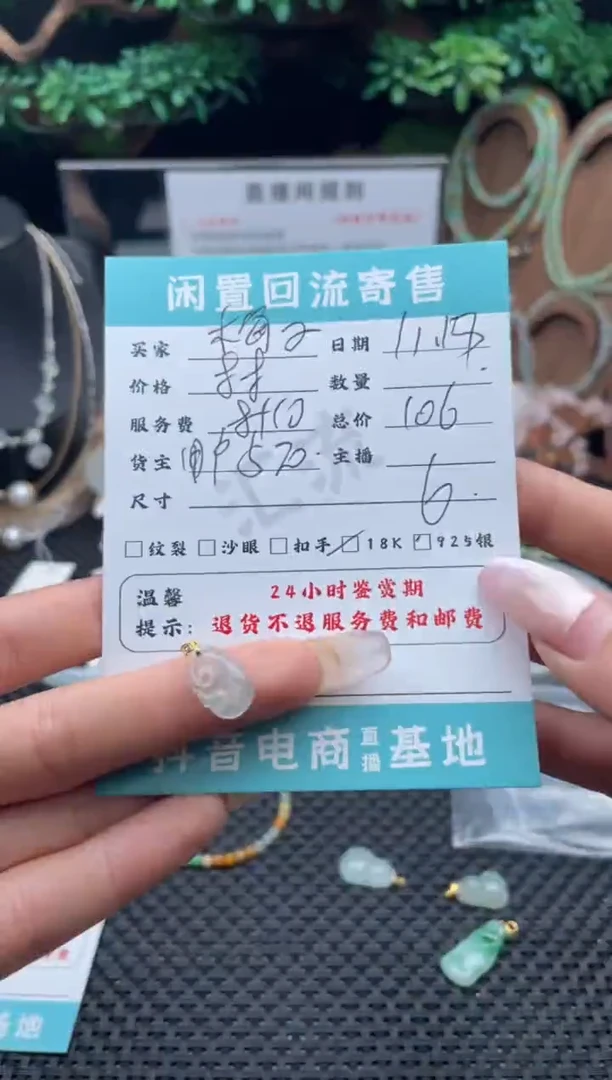 直播间规则
闲置回流寄售
买家 日期 11.18
价格 数量
服务费 总价 106
货主 570 主播
尺寸 6
纹裂 沙眼 扣手 18K 925银
温馨 24小时鉴赏期
提示: 退货不退服务费和邮费
抖音电商直播基地
基地